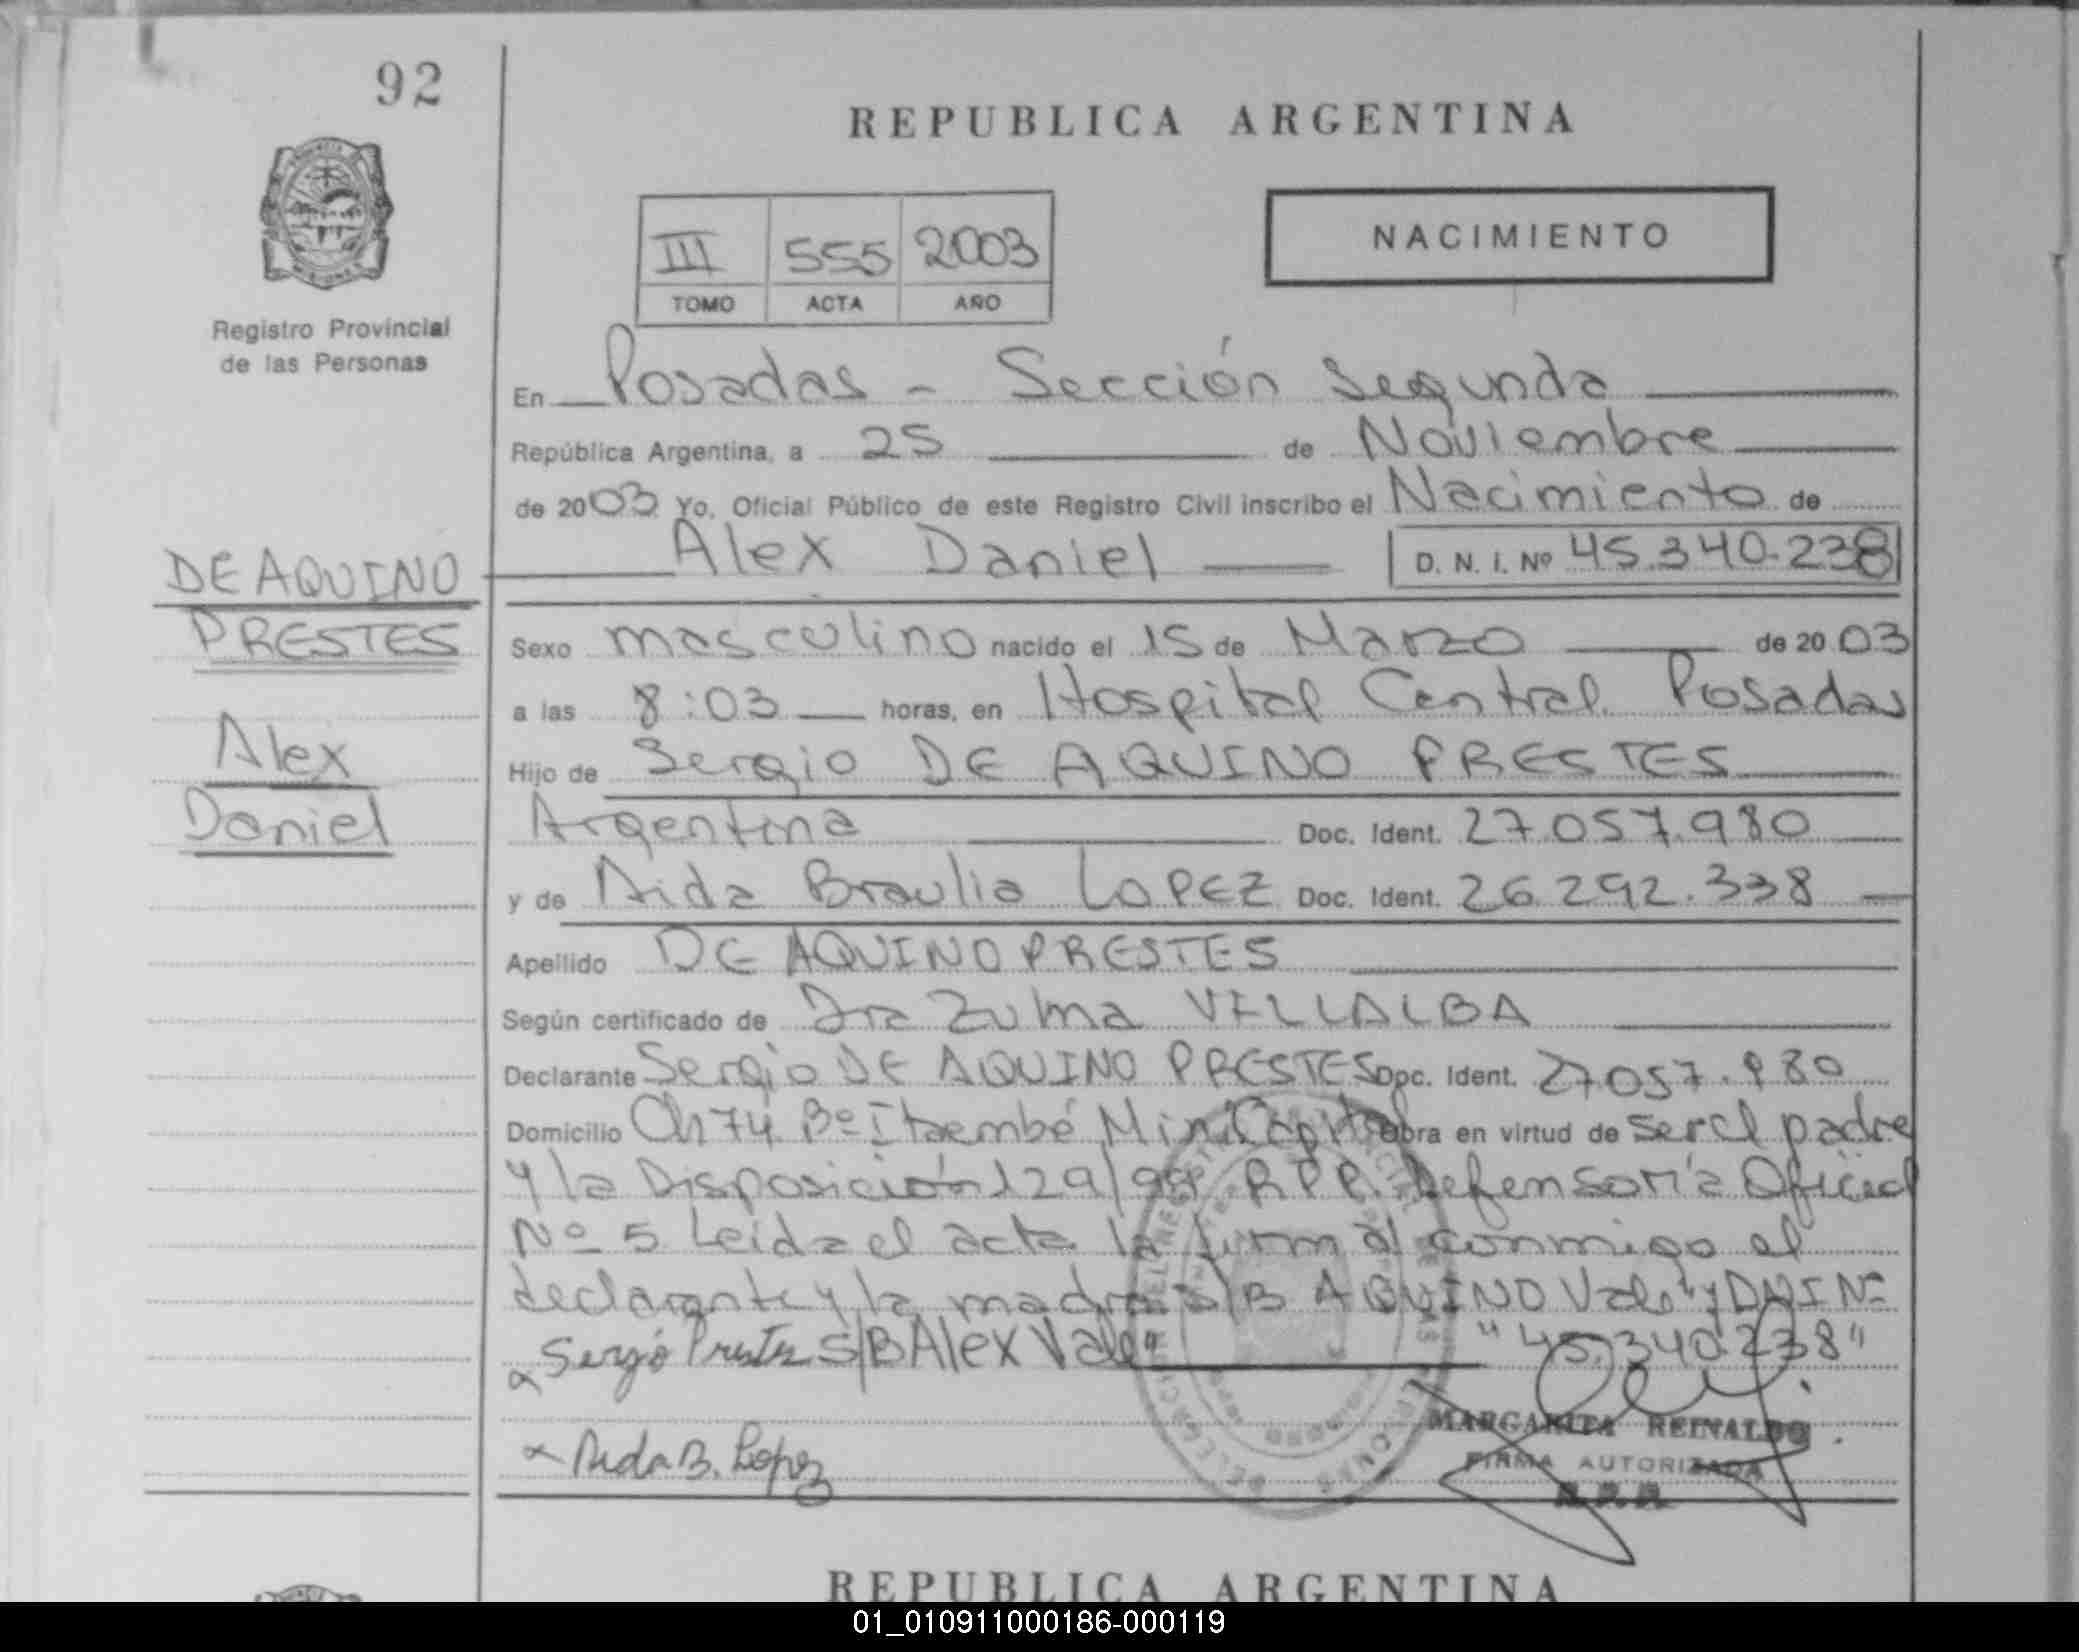 92
REPUBLICA ARGENTINA
III 555 2003
TOMO ACTA AÑO
NACIMIENTO
Registro Provincial
de las Personas
En Posadas - Sección Segunda
República Argentina, a 25 de Noviembre
de 2003 Yo, Oficial Público de este Registro Civil inscribo el Nacimiento de
Alex Daniel D. N. I. Nº 45.340.238
DE AQUINO
PRESTES
Alex
Daniel
Sexo masculino nacido el 15 de Marzo de 2003
a las 8:03 horas, en Hospital Central Posadas
Hijo de Sergio DE AQUINO PRESTES
Argentina Doc. Ident. 27.057.980
y de Aida Braulia LOPEZ Doc. Ident. 26.292.338
Apellido DE AQUINO PRESTES
Según certificado de Dra Zulma VILLALBA
Declarante Sergio DE AQUINO PRESTES Doc. Ident. 27.057.980
Domicilio Ch 74 Bº Itaembé Miní obra en virtud de ser el padre
y la Disposición 129/99 R.P.P. Defensoría Oficial
Nº 5 Leída el acta la firma conmigo el
declarante y la madre S/B AQUINO Vale" y DNI Nº
Sergio Prestes S/B Alex Vale" "45.340.238"
Aida B. Lopez
MARGARITA REINALDO
FIRMA AUTORIZADA
R.P.P.
REPUBLICA ARGENTINA
01_010911000186-000119